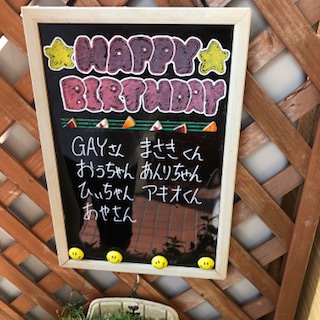 HAPPY
BIRTHDAY
GAYさん まさきくん
おうちゃん あんりちゃん
ひぃちゃん アキオくん
あやさん